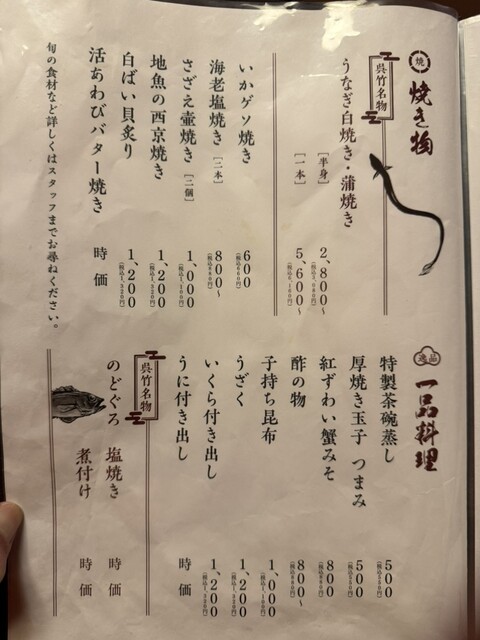 焼
焼き物
呉竹名物
うなぎ白焼き・蒲焼き
[半身] 2、800〜
[一本] 5、600〜
いかゲソ焼き 600
(税込660円)
海老塩焼き [二本] 800〜
(税込880円)
さざえ壷焼き [二個] 1、000
(税込1、100円)
地魚の西京焼き 1、200
(税込1、320円)
白ばい貝炙り 1、200
(税込1、320円)
活あわびバター焼き 時価
旬の食材など詳しくはスタッフまでお尋ねください。
逸品
一品料理
特製茶碗蒸し 500
(税込550円)
厚焼き玉子 つまみ 500
(税込550円)
紅ずわい蟹みそ 800
(税込880円)
酢の物 800〜
(税込880円)
子持ち昆布 1、000
(税込1、100円)
うざく 1、200
(税込1、320円)
いくら付き出し 1、200
(税込1、320円)
うに付き出し 時価
呉竹名物
のどぐろ 塩焼き 時価
煮付け 時価